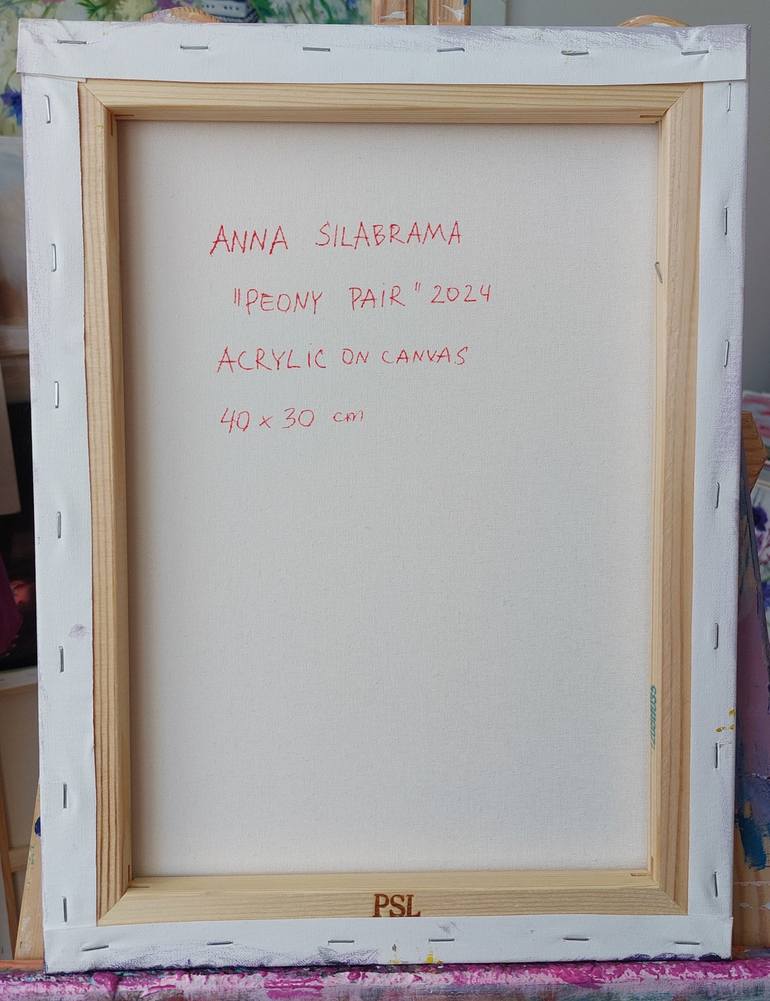 ANNA SILABRAMA
"PEONY PAiR" 2024
ACRYLiC ON CANVAS
40 x 30 cm
PSL